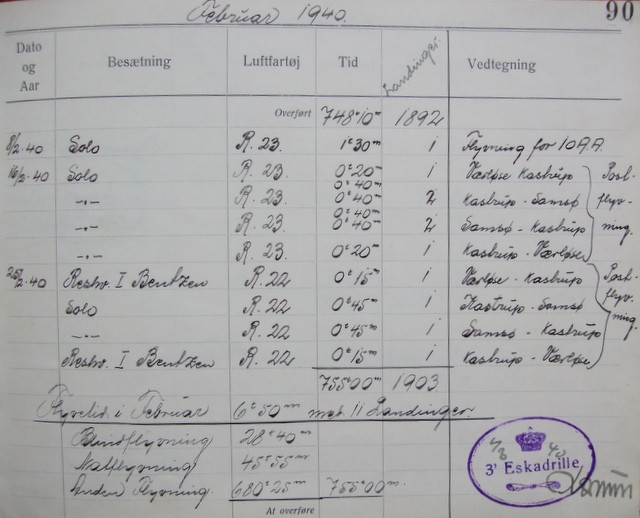 Februar 1940.
90
Dato og Aar Besætning Luftfartøj Tid Landinger Vedtegning
Overført 748t10m 1892
8/2.40 Solo R. 23. 1t30m 1 Flyvning for 10 A.A.
16/2.40 Solo R. 23. 0t20m 1 Værløse Kastrup
0t40m
-"- R. 23. 0t40m 2 Kastrup - Samsø
0t40m
-"- R. 23. 0t40m 2 Samsø - Kastrup
-"- R. 23. 0t20m 1 Kastrup - Værløse
Postflyvning.
25/2.40 I Bentzen R. 22 0t15m 1 Værløse - Kastrup
Solo R. 22 0t45m 1 Kastrup - Samsø
-"- R. 22 0t45m 1 Samsø - Kastrup
I Bentzen R. 22 0t15m 1 Kastrup - Værløse
Postflyvning.
755t00m 1903
Flyvetid i Februar 6t50m med 11 Landinger.
Blindflyvning 28t40m
Natflyvning 45t55m
Anden Flyvning. 680t25m 755t00m.
At overføre
3' Eskadrille